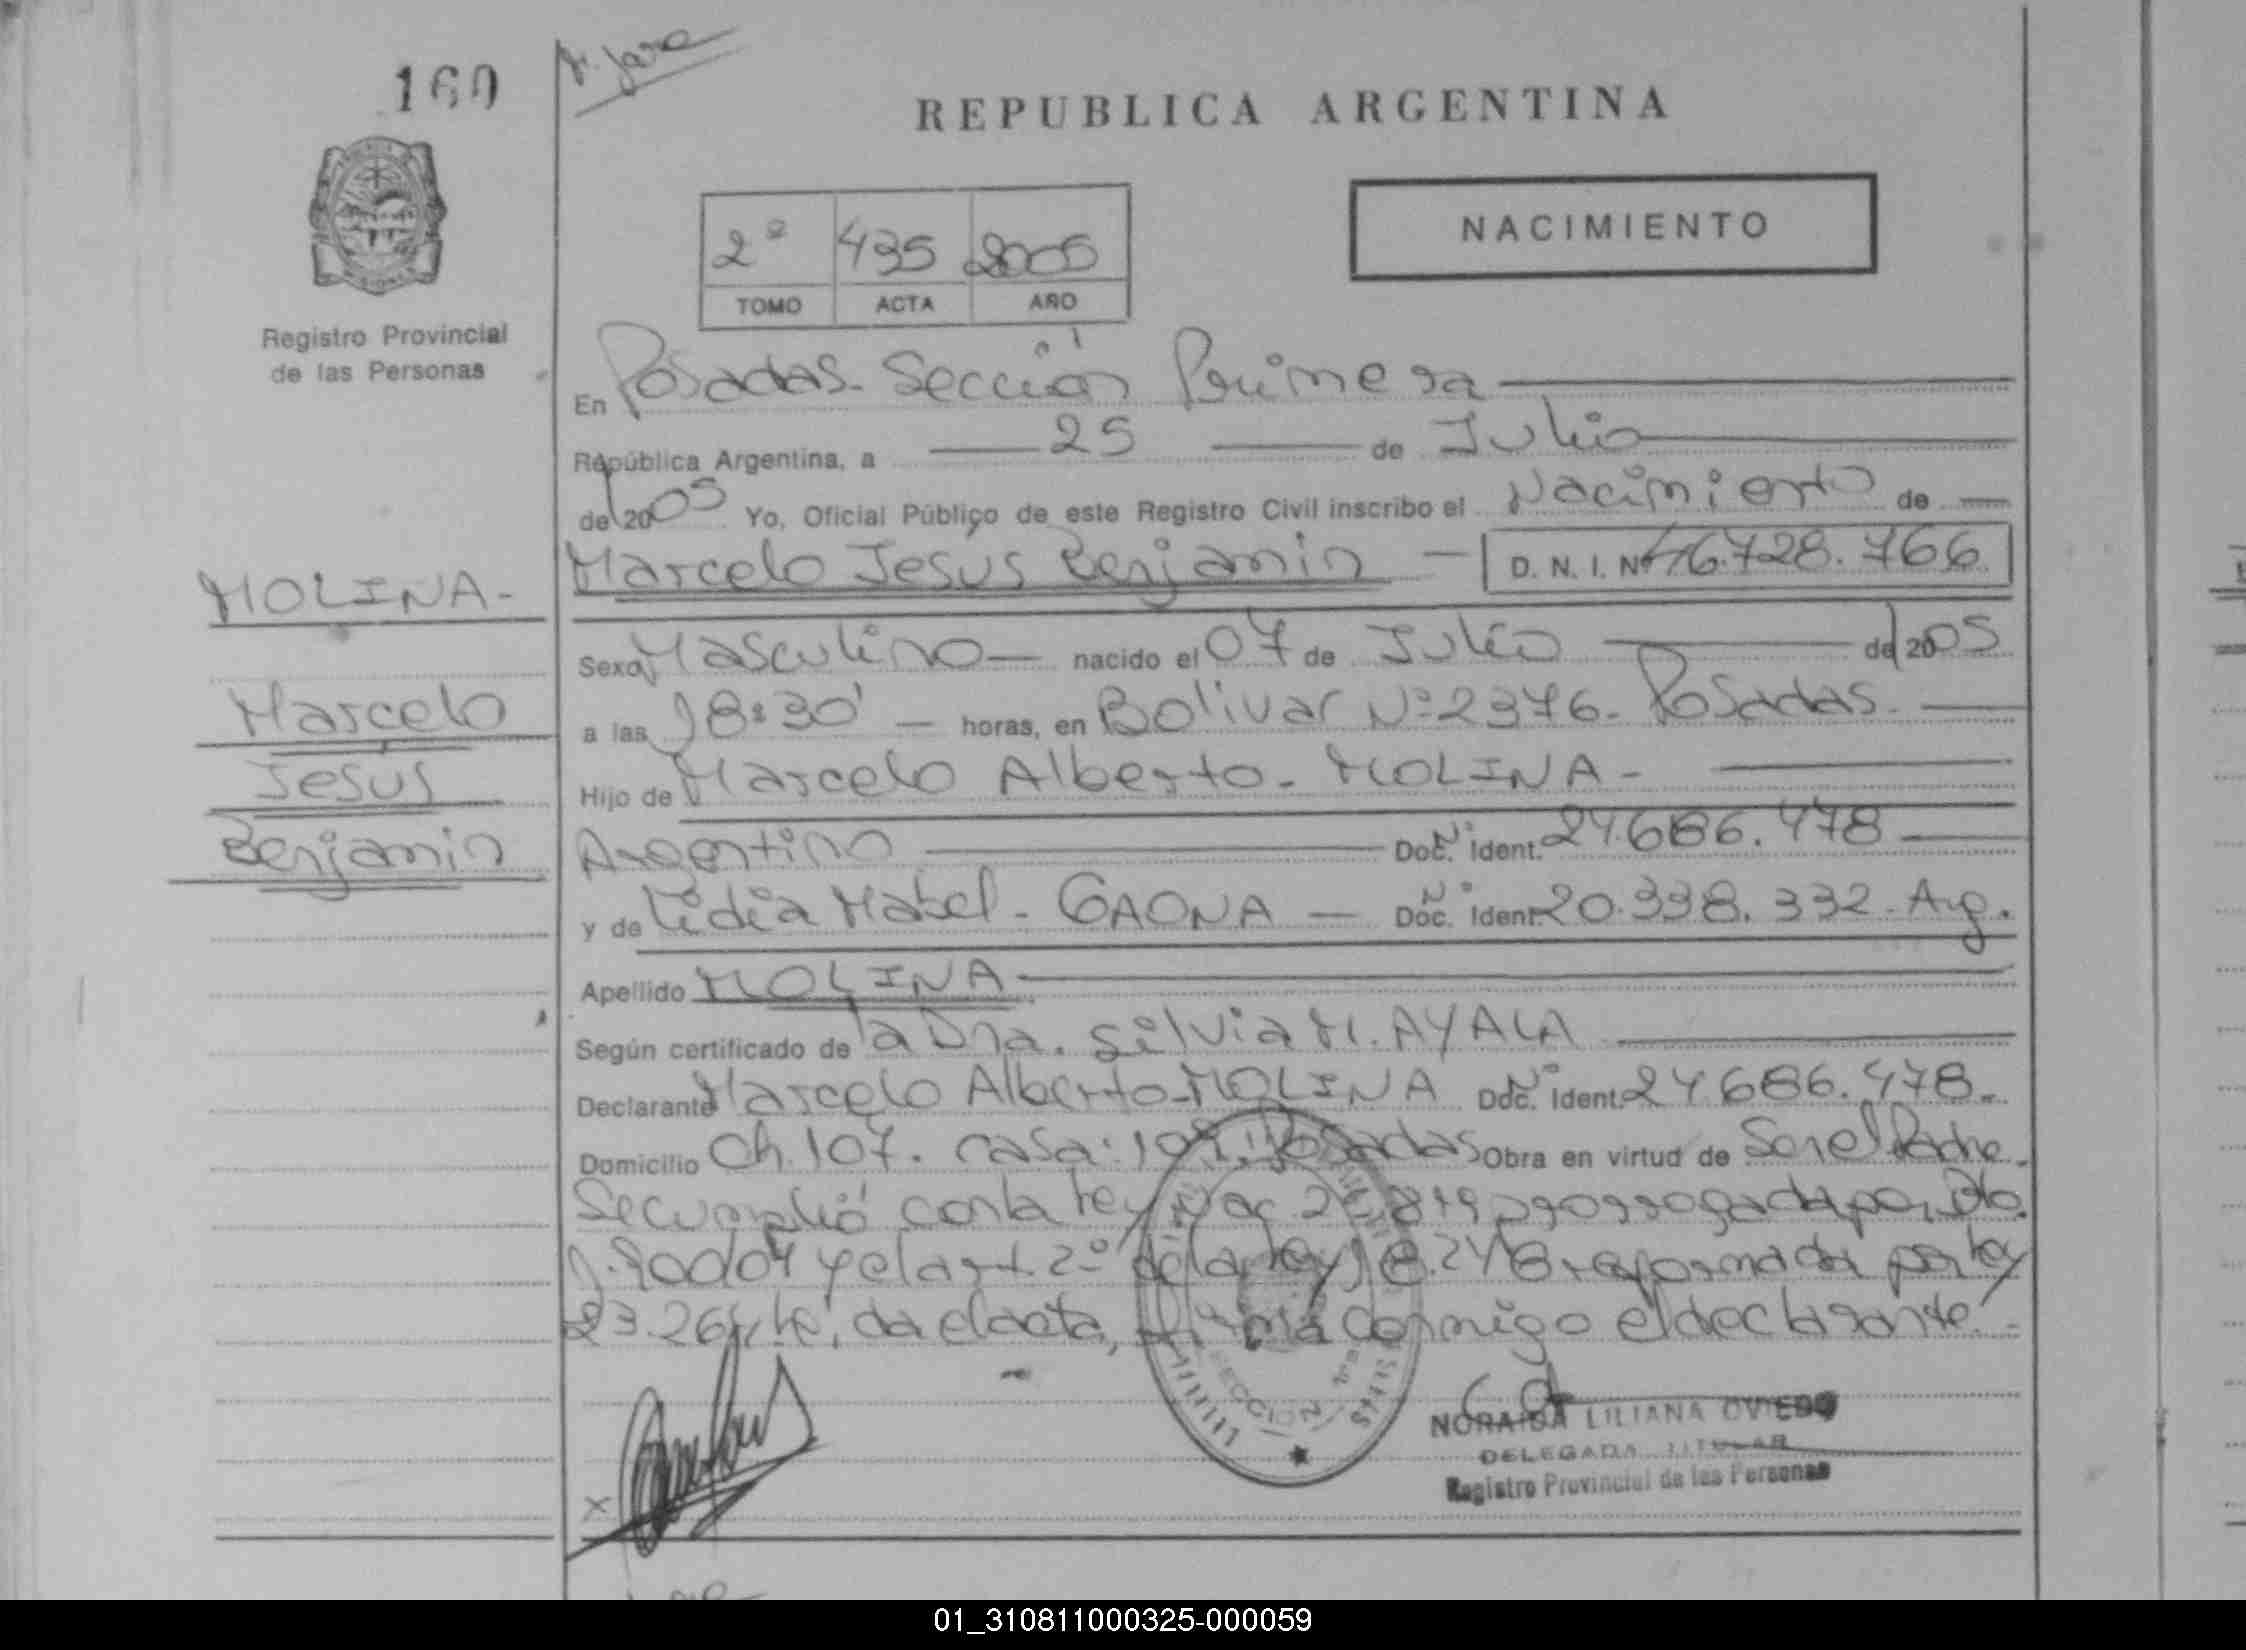 160
REPUBLICA ARGENTINA
NACIMIENTO
2º 435 2005
TOMO ACTA AÑO
Registro Provincial
de las Personas
En Posadas - Sección Primera
República Argentina, a 25 de Julio
del 2005 Yo, Oficial Público de este Registro Civil inscribo el Nacimiento de
Marcelo Jesus Benjamin D. N. I. Nº 46.728.766
MOLINA -
Marcelo
Jesus
Benjamin
Sexo Masculino nacido el 07 de Julio del 2005
a las 18:30' horas, en Bolivar Nº 2376 - Posadas -
Hijo de Marcelo Alberto - MOLINA -
Argentino Doc. Nº Ident. 24.686.478
y de Lidia Mabel - GAONA Doc. Nº Ident. 20.338.332 - Arg.
Apellido MOLINA
Según certificado de la Dra. Silvia M. AYALA
Declarante Marcelo Alberto - MOLINA Doc. Nº Ident. 24.686.478 -
Domicilio Ch. 107. Casa: Posadas Obra en virtud de Ser el Padre.
Se cumplió con la Ley Nac prorrogada por Dto.
y el art. 2º de la Ley 18.248 reformada por Ley
23.264, leída el acta, firma conmigo el declarante. -
X
SECCION
NORAIDA LILIANA OVIEDO
DELEGADA TITULAR
Registro Provincial de las Personas
01_310811000325-000059